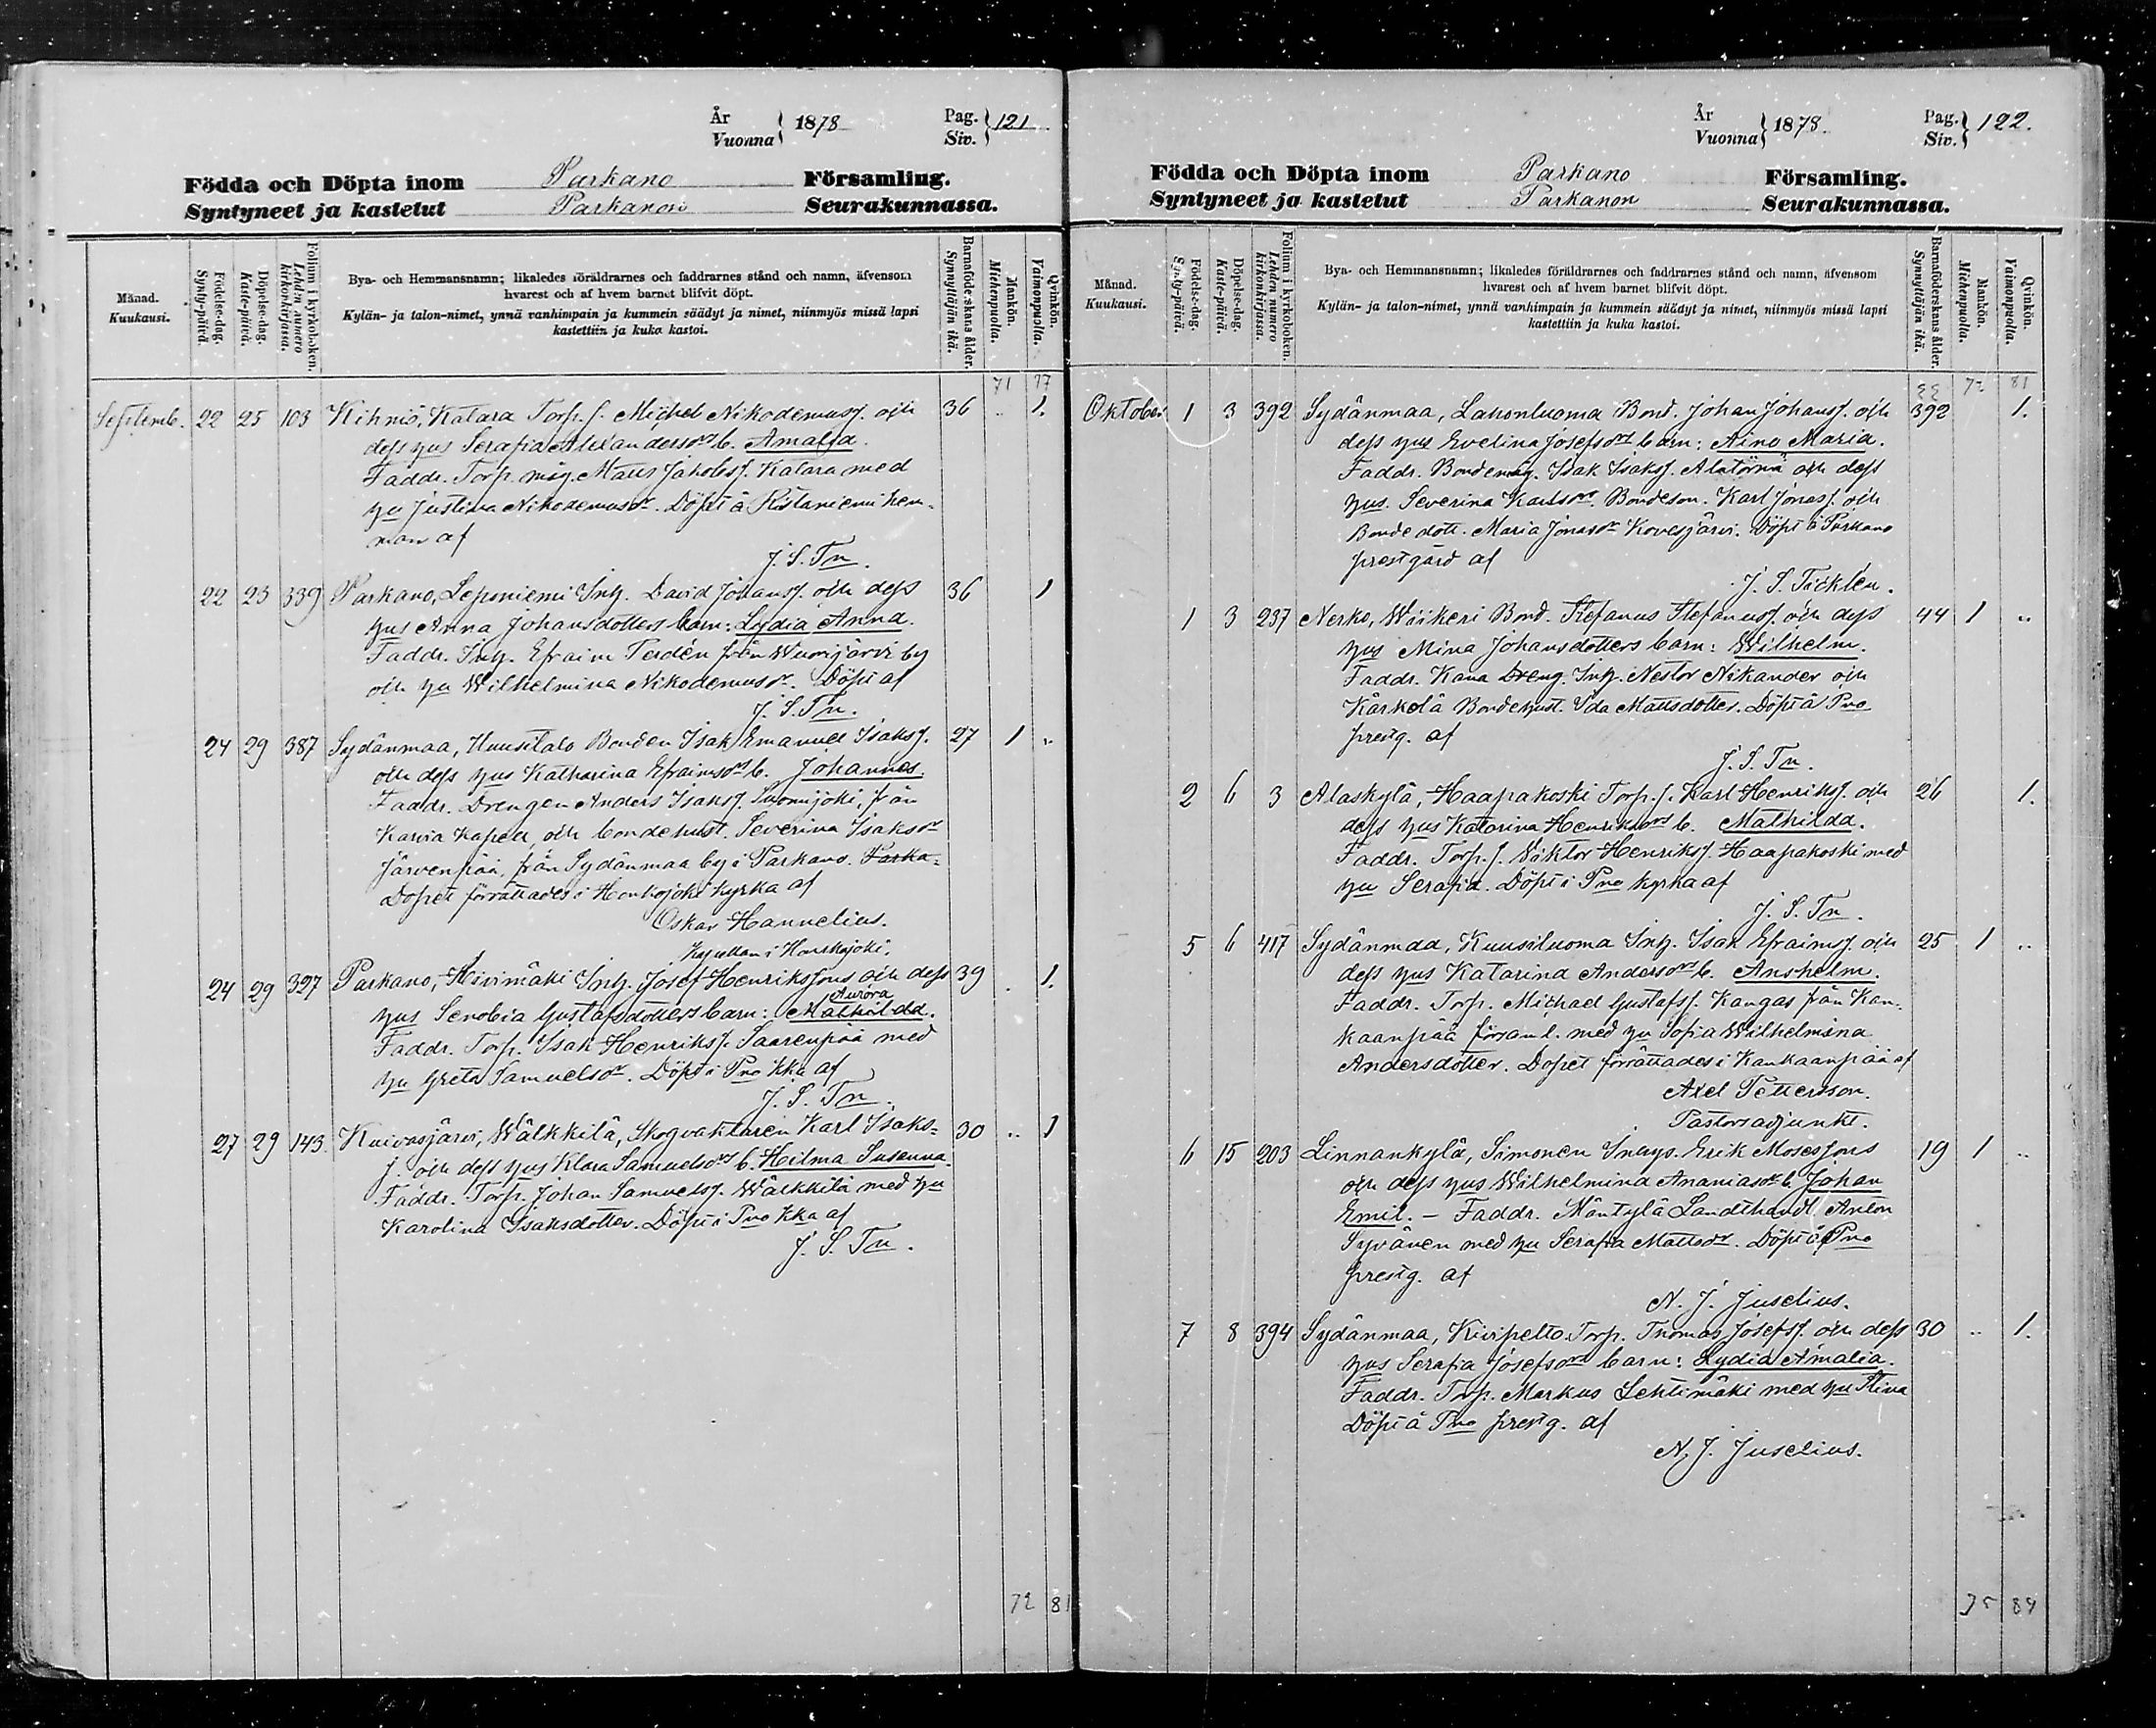 År Vuonna 1878 Pag. Siv. 121
Födda och Döpta inom Parkano Församling.
Syntyneet ja kastetut Parkanon Seurakunnassa.
Månad. Kuukausi.
Födelse-dag. Synty-päivä.
Döpelse-dag. Kaste-päivä.
Folium i kyrkoboken. Lehden numero kirkonkirjassa.
Bya- och Hemmansnamn; likaledes föräldrarnes och faddrarnes stånd och namn, äfvensom
hvarest och af hvem barnet blifvit döpt.
Kylän- ja talon-nimet, ynnä vanhimpain ja kummein säädyt ja nimet, niinmyös missä lapsi
kastettiin ja kuka kastoi.
Barnaföderskans ålder. Synnyttäjän ikä.
Mankön. Miehenpuolta.
Qvinkön. Vaimonpuolta.
71 77
Septemb. 22 25 103 Kihniö, Katara Torp. s. Michel Nikodemuss. och 36 .. 1.
dess hus Serafia Alexandersdrs b. Amalia.
Faddr. Torp. måg. Matts Jakobss. Katara med
hu Justina Nikodemusdr. Döpt å Ristaniemi hem-
man af
J. S. Tn.
22 23 339 Parkano, Leponiemi Inh. David Johanss. och dess 36 1
hus Anna Johansdotters barn: Lydia Anna.
Faddr. Inh. Efraim Terdén från Wuorijärvi by
och hu Wilhelmina Nikodemusdr. Döpt af
J. S. Tn.
24 29 387 Sydänmaa, Uusitalo Bonden Isak Emanuel Isakss. 27 1 ..
och dess hus Katharina Efraimsdrs b. Johannes.
Faddr. Drengen Anders Isakss. Suomijoki, från
Karvia Kapell, och bondehust. Severina Isaksdr
Järvenpää, från Sydänmaa by i Parkano. Parka-
Dopet förrättades i Honkojoki kyrka af
Oskar Hannelius.
Kapellan i Honkojoki.
24 29 327 Parkano, Hirvimäki Inh. Josef Henrikssons och dess 39 . 1.
Aurora
hus Senobia Gustafsdotters barn: Mathilda.
Faddr. Torp. Isak Henrikss. Saarenpää med
hu Greta Samuelsdr. Döpt i Pno kka af
J. S. Tn.
27 29 143. Kuivasjärvi, Wälkkilä, Skogvaktaren Karl Isaks= 30 .. 1
s. och dess hus Klara Samuelsdrs b. Hilma Susanna.
Faddr. Torp. Johan Samuelss. Wälkkilä med hu
Karolina Isaksdotter. Döpt i Pno kka af
J. S. Tn.
72 81
År Vuonna 1878. Pag. Siv. 122.
Födda och Döpta inom Parkano Församling.
Syntyneet ja kastetut Parkanon Seurakunnassa.
Månad. Kuukausi.
Födelse-dag. Synty-päivä.
Döpelse-dag. Kaste-päivä.
Folium i kyrkoboken. Lehden numero kirkonkirjassa.
Bya- och Hemmansnamn; likaledes föräldrarnes och faddrarnes stånd och namn, äfvensom
hvarest och af hvem barnet blifvit döpt.
Kylän- ja talon-nimet, ynnä vanhimpain ja kummein säädyt ja nimet, niinmyös missä lapsi
kastettiin ja kuka kastoi.
Barnaföderskans ålder. Synnyttäjän ikä.
Mankön. Miehenpuolta.
Qvinkön. Vaimonpuolta.
72 81
Oktober 1 3 392 Sydänmaa, Lahonluoma Bond. Johan Johanss. och 392 1.
dess hus Evelina Josefsdrs barn: Aino Maria.
Faddr. Bondemåg. Isak Isakss. Alatörmä och dess
hus. Severina Karlsdr. Bondeson. Karl Jonass. och
Bonde dott. Maria Jonasdr Kovesjärvi. Döpt å Parkano
prestgård af
J. S. Ticklén.
1 3 237 Nerko, Wiikeri Bond. Stefanus Stefanuss. och dess 44 1 ..
hus Mina Johansdotters barn: Wilhelm.
Faddr. Kana Dreng. Inh. Nestor Nikander och
Kärkelä Bondehust. Ida Mattsdotter. Döpt å Pno
prestg. af
J. S. Tn.
2 6 3 Alaskylä, Haapakoski Torp. s. Karl Henrikss. och 26 1.
dess hus Katarina Henriksdrs b. Mathilda.
Faddr. Torp. s. Wiktor Henrikss. Haapakoski med
hu Serafia. Döpt i Pno kyrka af
J. S. Tn.
5 6 417 Sydänmaa, Kuusiluoma Inh. Isak Efraimss. och 25 1 ..
dess hus Katarina Andersdrs b. Anshelm.
Faddr. Torp. Michael Gustafss. Kangas från Kan-
kaanpää församl. med hu Sofia Wilhelmina
Andersdotter. Dopet förrättades i Kankaanpää af
Axel Pettersson.
Pastorsadjunkt.
6 15 203 Linnankylä, Simonen Inhys. Erik Mosessons 19 1 ..
och dess hus Wilhelmina Ananiasdr b. Johan
Emil. – Faddr. Mäntylä Landthandl. Anton
Syvänen med hu Serafia Mattsdr. Döpt å Pno
prestg. af
N. J. Juselius.
7 8 394 Sydänmaa, Kivipelto Torp. Thomas Josefss. och dess 30 .. 1.
hus Serafia Josefsdrs barn: Lydia Amalia.
Faddr. Torp. Markus Lehtimäki med hu Stina
Döpt å Pno prestg. af
N. J. Juselius.
75 84